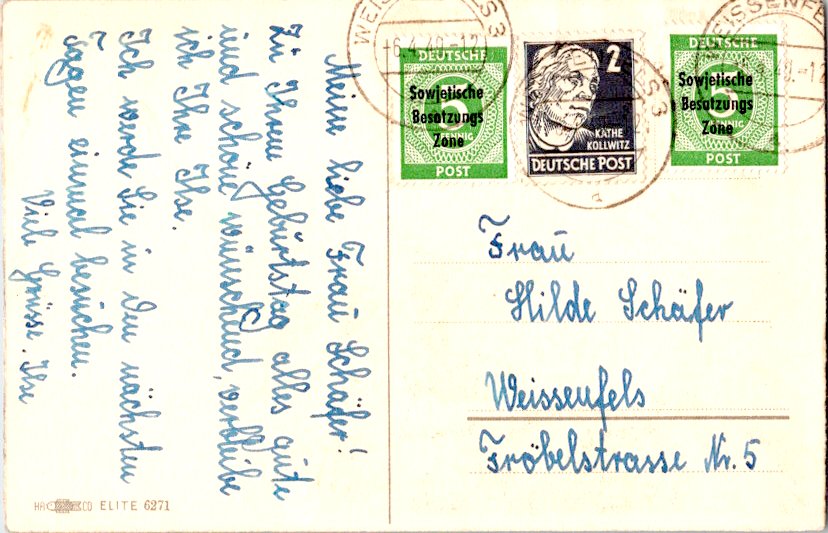 Meine liebe Frau Schäfer!
Zu Ihrem Geburtstag alles gute
und schöne wünschend, verbleibe
ich Ihre Ilse.
Ich werde Sie in den nächsten
Tagen einmal besuchen.
Viele Grüsse. Ilse
WEISSENFELS 3
-6.4.49.-12
DEUTSCHE
Sowjetische
Besatzungs
Zone
5
PFENNIG
POST
2
KÄTHE
KOLLWITZ
DEUTSCHE POST
a
WEISSENFELS
49.-12
DEUTSCHE
Sowjetische
Besatzungs
Zone
5
PFENNIG
POST
Frau
Hilde Schäfer
Weissenfels
Fröbelstrasse Nr. 5
HACO ELITE 6271